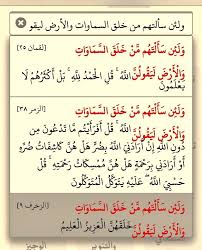 ولئن سألتهم من خلق السماوات والأرض ليقو
لقمان ٢٥
وَلَئِن سَأَلْتَهُم مَّنْ خَلَقَ السَّمَاوَاتِ
وَالْأَرْضَ لَيَقُولُنَّ اللَّهُ ۚ قُلِ الْحَمْدُ لِلَّهِ ۚ بَلْ أَكْثَرُهُمْ لَا
يَعْلَمُونَ
الزمر ٣٨
وَلَئِن سَأَلْتَهُم مَّنْ خَلَقَ السَّمَاوَاتِ
وَالْأَرْضَ لَيَقُولُنَّ اللَّهُ ۚ قُلْ أَفَرَأَيْتُم مَّا تَدْعُونَ مِن
دُونِ اللَّهِ إِنْ أَرَادَنِيَ اللَّهُ بِضُرٍّ هَلْ هُنَّ كَاشِفَاتُ ضُرِّهِ
أَوْ أَرَادَنِي بِرَحْمَةٍ هَلْ هُنَّ مُمْسِكَاتُ رَحْمَتِهِ ۚ قُلْ
حَسْبِيَ اللَّهُ ۖ عَلَيْهِ يَتَوَكَّلُ الْمُتَوَكِّلُونَ
الزخرف ٩
وَلَئِن سَأَلْتَهُم مَّنْ خَلَقَ السَّمَاوَاتِ
وَالْأَرْضَ لَيَقُولُنَّ خَلَقَهُنَّ الْعَزِيزُ الْعَلِيمُ
الوجيز